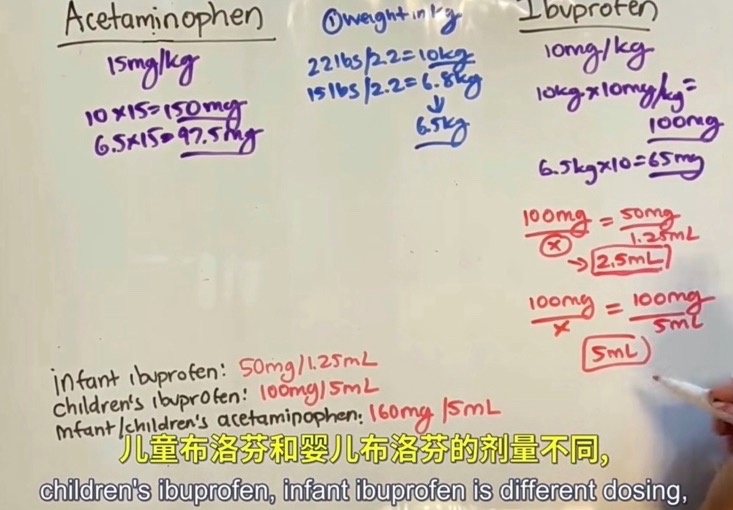 Acetaminophen
15mg/kg
10 x 15 = 150mg
6.5 x 15 = 97.5mg
① weight in kg
22 lbs/2.2 = 10kg
15 lbs/2.2 = 6.8kg
↓
6.5kg
Ibuprofen
10mg/kg
10kg x 10mg/kg =
100mg
6.5kg x 10 = 65mg
100mg = 50mg
x 1.25mL
→ 2.5mL
100mg = 100mg
x 5mL
5mL
infant ibuprofen: 50mg/1.25mL
children's ibuprofen: 100mg/5mL
infant/children's acetaminophen: 160mg/5mL
儿童布洛芬和婴儿布洛芬的剂量不同,
children's ibuprofen, infant ibuprofen is different dosing,